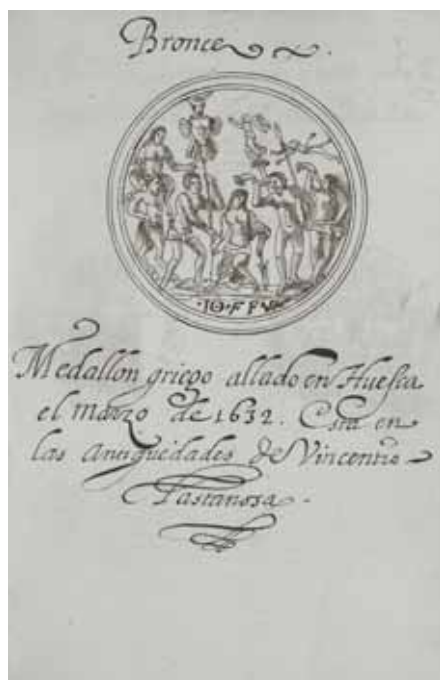 Bronce
·IO·F F
Medallon griego allado en Huesca
el marzo de 1632. Esta en
las antiguedades de Vincentio
Lastanosa.